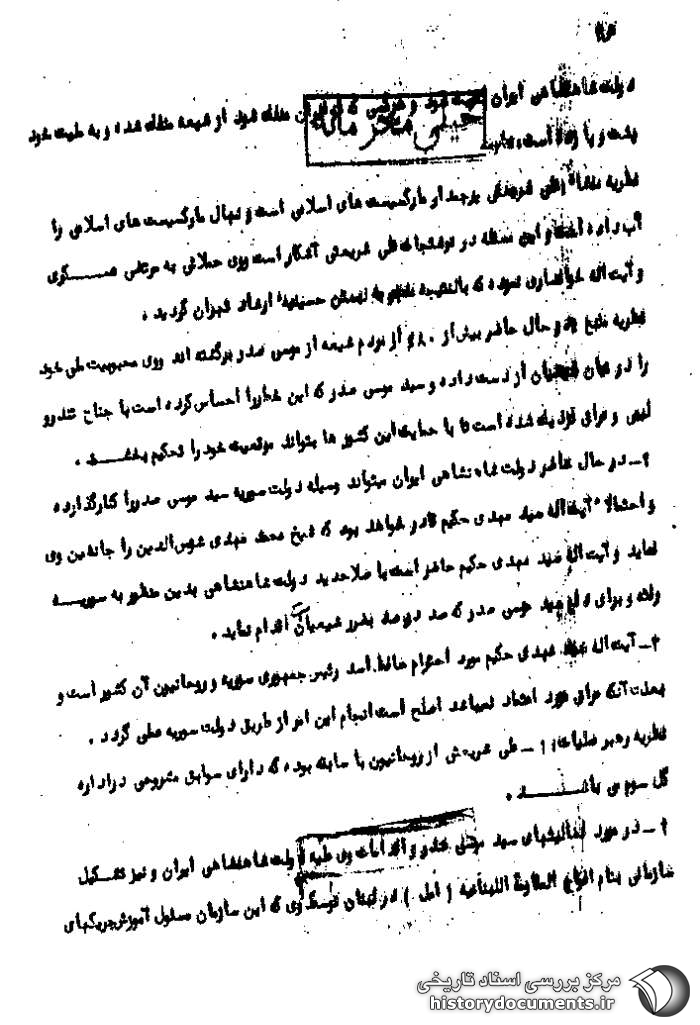 دولت شاهنشاهی ایران شود و هرکسی که در ایران عقده شود از شیعه عقده شده و به طیت خود
خیلی محرمانه
پشت و پا زده است
نظریه منشاء علی شریعتی پرچمدار مارکسیست های اسلامی است و نهال مارکسیست های اسلامی را
آب داده است و این مسئله در نوشتجات علی شریعتی آشکار است وی حملاتی به مرتضی عسکری
و آیت اله خوانساری نموده که بالنتیجه منجر به بستن حسینیه ارشاد تهران گردید .
نظریه منبع در حال حاضر بیش از ۸۰٪ از مردم شیعه از موسی صدر برگشته اند وی محبوبیت ملی خود
را در میان شیعیان از دست داده و سید موسی صدر که این خطر را احساس کرده است با جناح تندرو
لیبی و عراق نزدیک شده است تا با حمایت این کشور ها بتواند موقعیت خود را تحکیم بخشد .
۲ـ در حال حاضر دولت شاهنشاهی ایران میتواند وسیله دولت سوریه سید موسی صدر را کنار گذارده
و احتمالا آیت اله سید مهدی حکیم قادر خواهد بود که شیخ محمد مهدی شمس الدین را جانشین وی
نماید و آیت اله سید مهدی حکیم حاضر است با صلاحدید دولت شاهنشاهی بدین منظور به سوریه
رفته و برای دفع سید موسی صدر که صد درصد بضرر شیعیان اقدام نماید .
۳ـ آیت اله سید مهدی حکیم مورد احترام حافظ اسد رئیس جمهوری سوریه و روحانیون آن کشور است و
بعلت آنکه عراق مورد اعتماد نمیباشد اصلح است انجام این امر از طریق دولت سوریه عملی گردد .
نظریه رهبر عملیات: ۱ـ علی شریعتی از روحانیون با سابقه بوده که دارای سوابق مشروحی در اداره
کل سوم می باشد .
۲ـ در مورد فعالیتهای سید موسی صدر و اقدامات وی علیه دولت شاهنشاهی ایران و نیز تشکیل
سازمانی بنام افواج المقاومة اللبنانیه ( امل ) در لبنان توسط وی که این سازمان مسئول آموزش چریکهای
مرکز بررسی اسناد تاریخی
historydocuments.ir